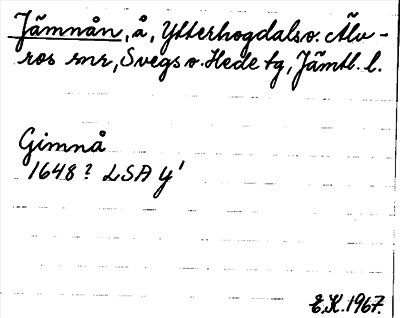 Jämnån, å, Ytterhogdals o. Älv-
ros snr, Svegs o. Hede tg, Jämtl. l.
Gimnå
1648? LSA Y¹
E.K. 1967.